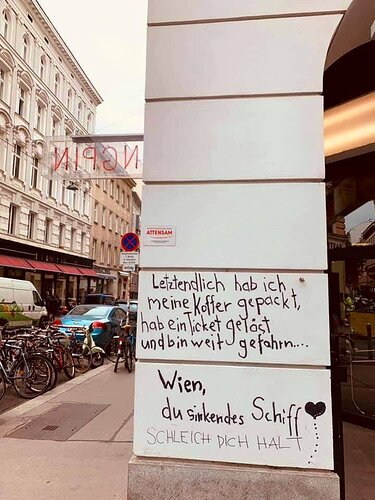 ATTENSAM
Letztendlich hab ich
meine Koffer gepackt,
hab ein Ticket gelöst
und bin weit gefahrn....
Wien,
du sinkendes Schiff
SCHLEICH DICH HALT